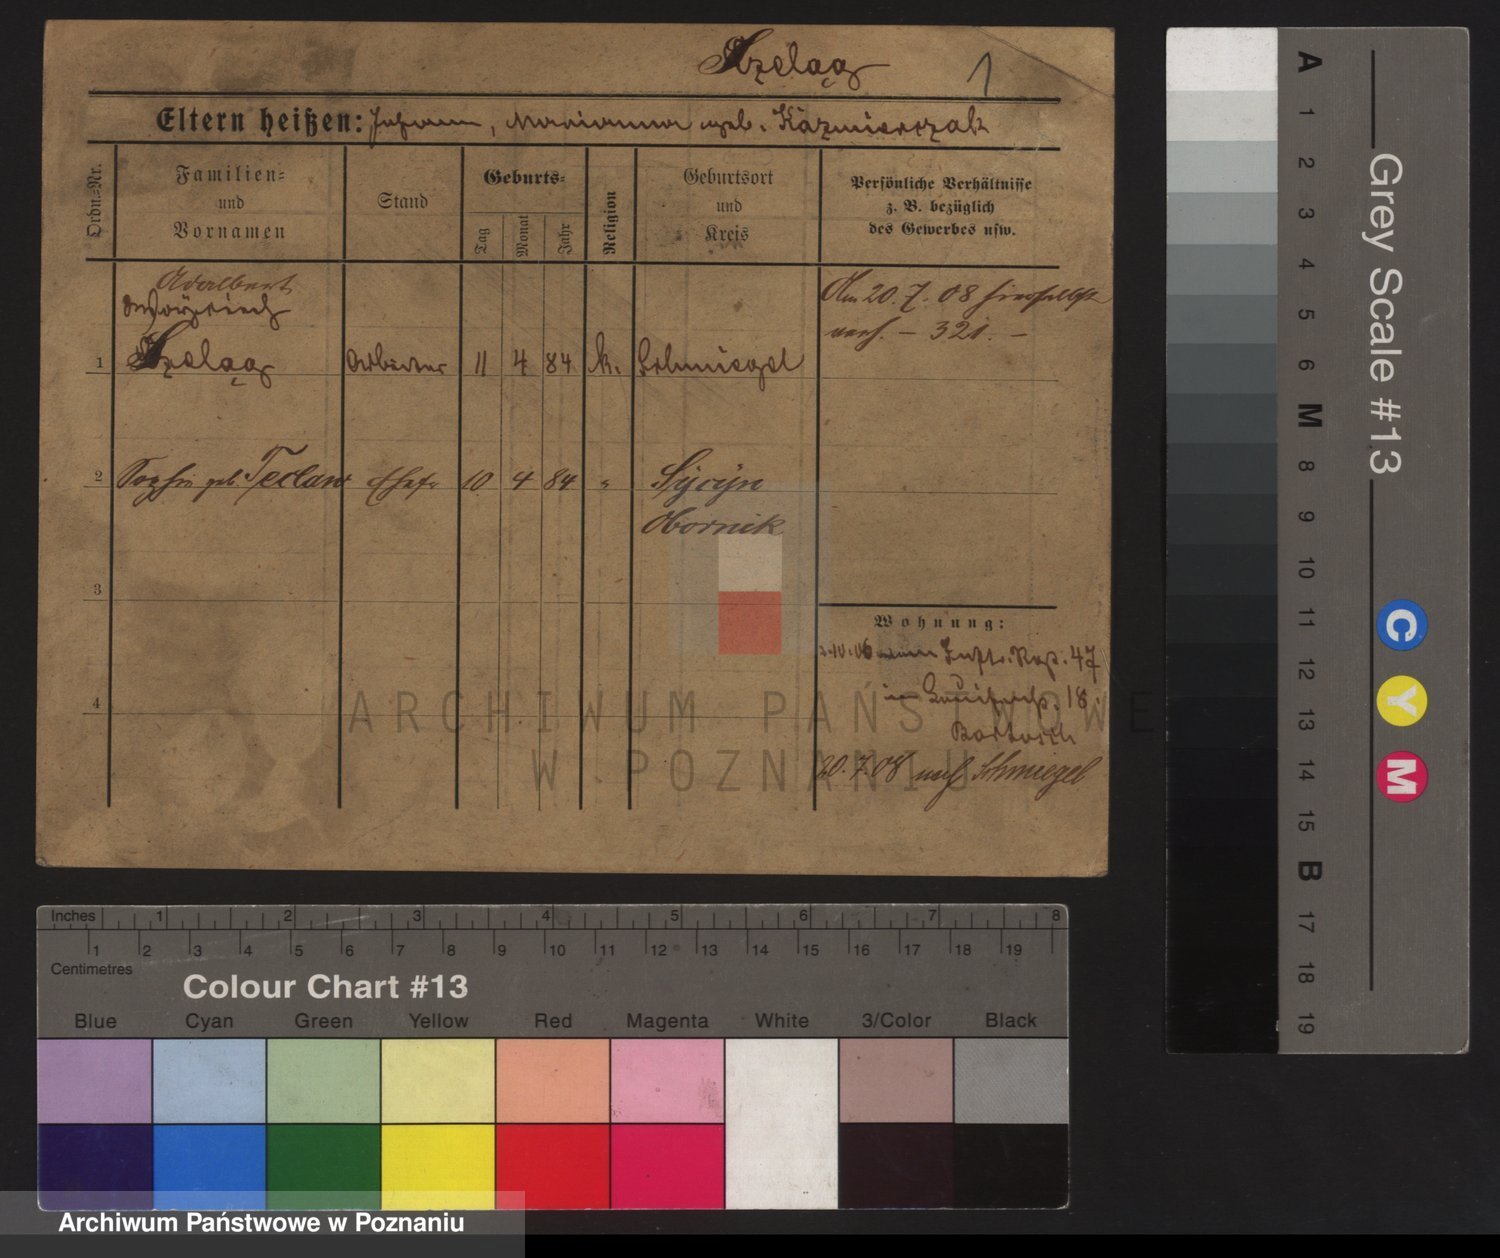 Szeląg 1
Eltern heißen: Johann, Marianna geb. Kazmierczak
Ordn.-Nr.
Familien- und Vornamen
Stand
Geburts-
Tag
Monat
Jahr
Religion
Geburtsort und Kreis
Persönliche Verhältnisse z. B. bezüglich des Gewerbes usw.
Adalbert
1 Szeląg Arbeiter 11 4 84 k. Schmiegel
Am 20. 7. 08 hierselbst
verh. – 321. –
2 Sophie geb. Teclaw Ehefr. 10 4 84 "
Obornik
3
4
Wohnung:
47
18
20.7.08 nach Schmiegel
ARCHIWUM PAŃSTWOWE
W POZNANIU
Inches 1 2 3 4 5 6 7 8
1 2 3 4 5 6 7 8 9 10 11 12 13 14 15 16 17 18 19
Centimetres
Colour Chart #13
Blue Cyan Green Yellow Red Magenta White 3/Color Black
Grey Scale #13
A 1 2 3 4 5 6 M 8 9 10 11 12 13 14 15 B 17 18 19
C Y M
Archiwum Państwowe w Poznaniu